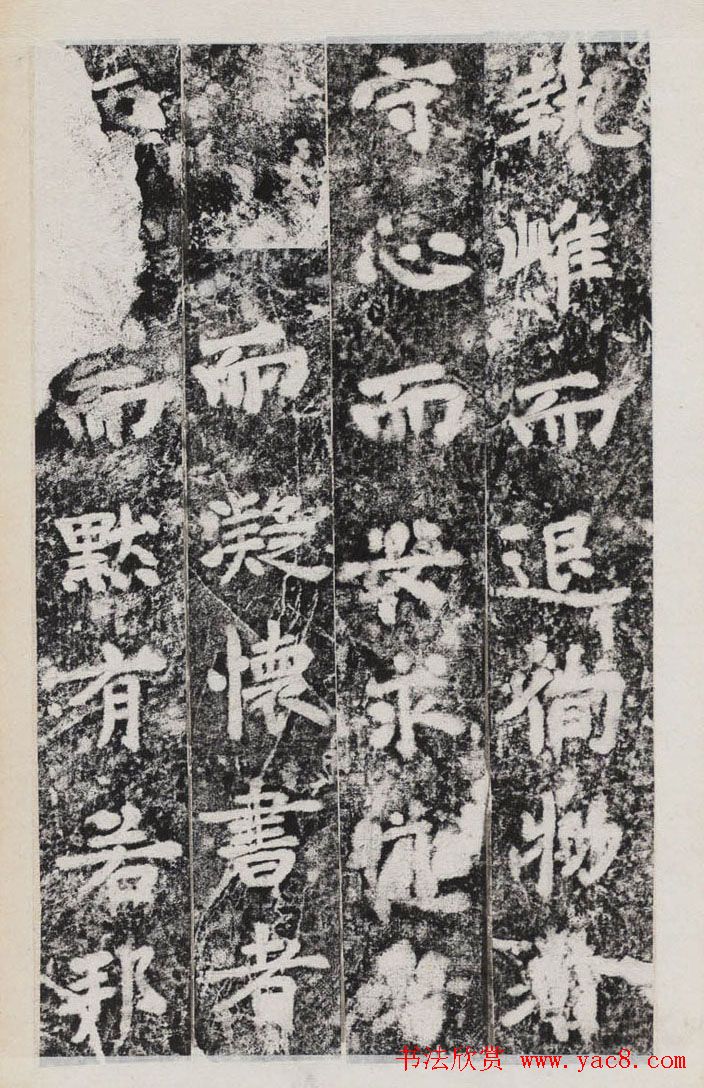 執雌而退徇物濟
守心而安求
而凝懷書者
而默有若邪
书法欣赏 www.yac8.com